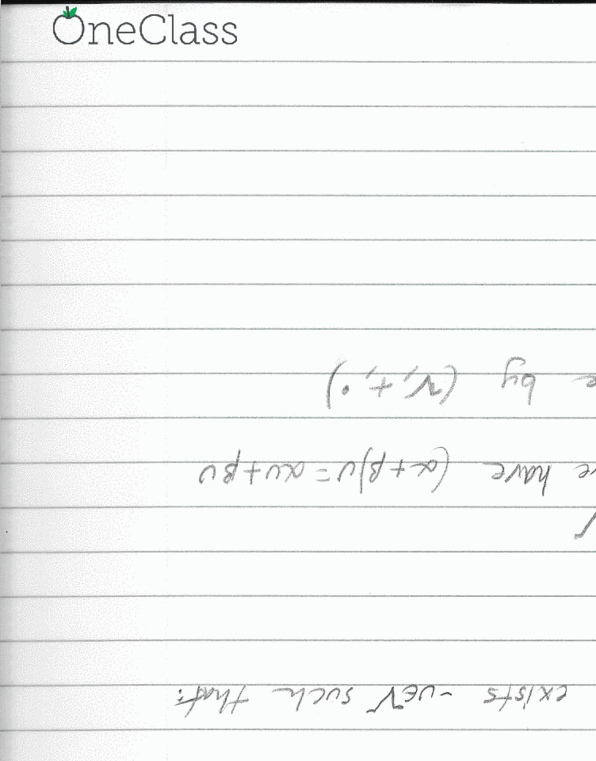 OneClass
exists -u∈V such that:
e have (α+β)u = αu+βu
e by (V, +, •)